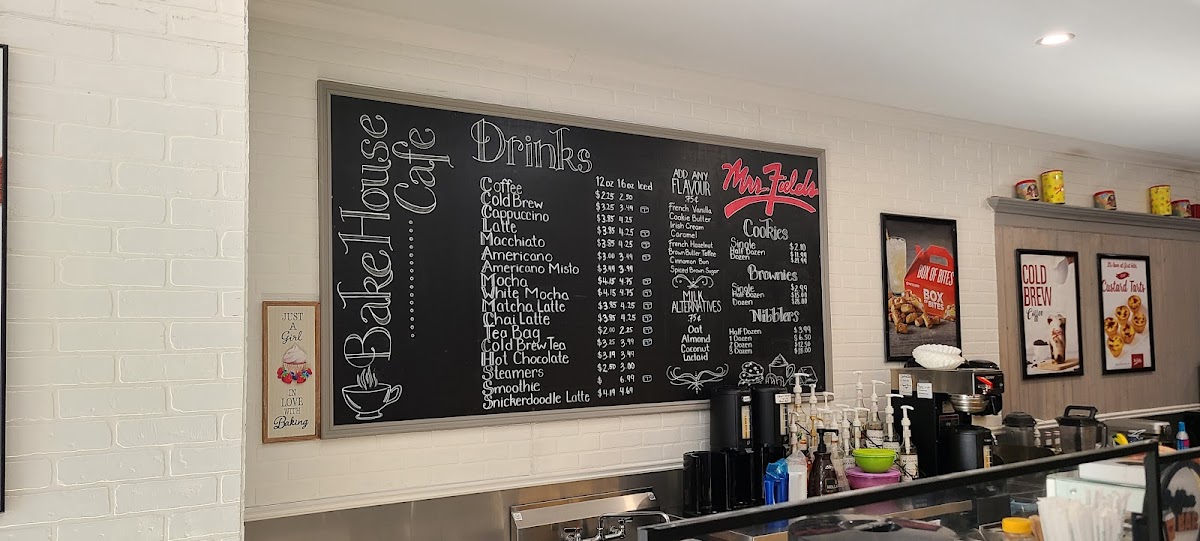 JUST
A
Girl
IN
LOVE
WITH
Baking
BakeHouse
Cafe
Drinks
12oz 16oz Iced
Coffee $2.25 2.50
Cold Brew $3.25 3.49
Cappuccino $3.85 4.25
Latte $3.85 4.25
Macchiato $3.85 4.25
Americano $3.00 3.49
Americano Misto $3.49 3.99
Mocha $4.15 4.75
White Mocha $4.15 4.75
Matcha Latte $3.85 4.25
Chai Latte $3.85 4.25
Tea Bag $2.00 2.25
Cold Brew Tea $3.25 3.99
Hot Chocolate $3.19 3.49
Steamers $2.50 3.00
Smoothie $ 6.99
Snickerdoodle Latte $4.19 4.69
ADD ANY
FLAVOUR
75¢
French Vanilla
Cookie Butter
Irish Cream
Caramel
French Hazelnut
Brown Butter Toffee
Cinnamon Bun
Spiced Brown Sugar
MILK
ALTERNATIVES
75¢
Oat
Almond
Coconut
Lactaid
Mrs. Fields
Cookies
Single $2.10
Half Dozen $11.99
Dozen
Brownies
Single $2.99
Half Dozen $15.00
Dozen
Nibblers
Half Dozen $3.99
1 Dozen $6.50
2 Dozen $12.50
3 Dozen $18.00
BOX OF BITES
BOX
OF BITES
COLD
BREW
Coffee
Custard Tarts